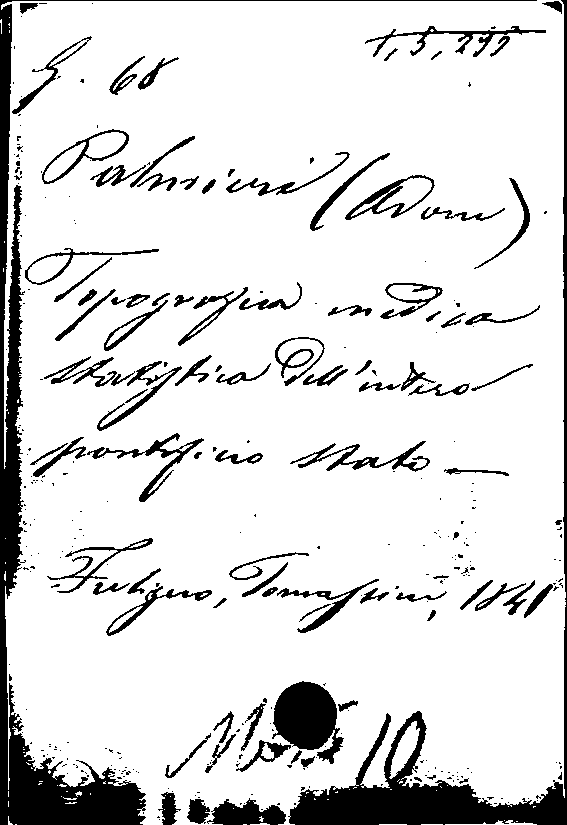 1, 5, 297
G. 68
Palmieri (Adone)
Topografica medica
statistica dell'intero
pontificio stato —
Fuligno, Tomassini, 1841
10